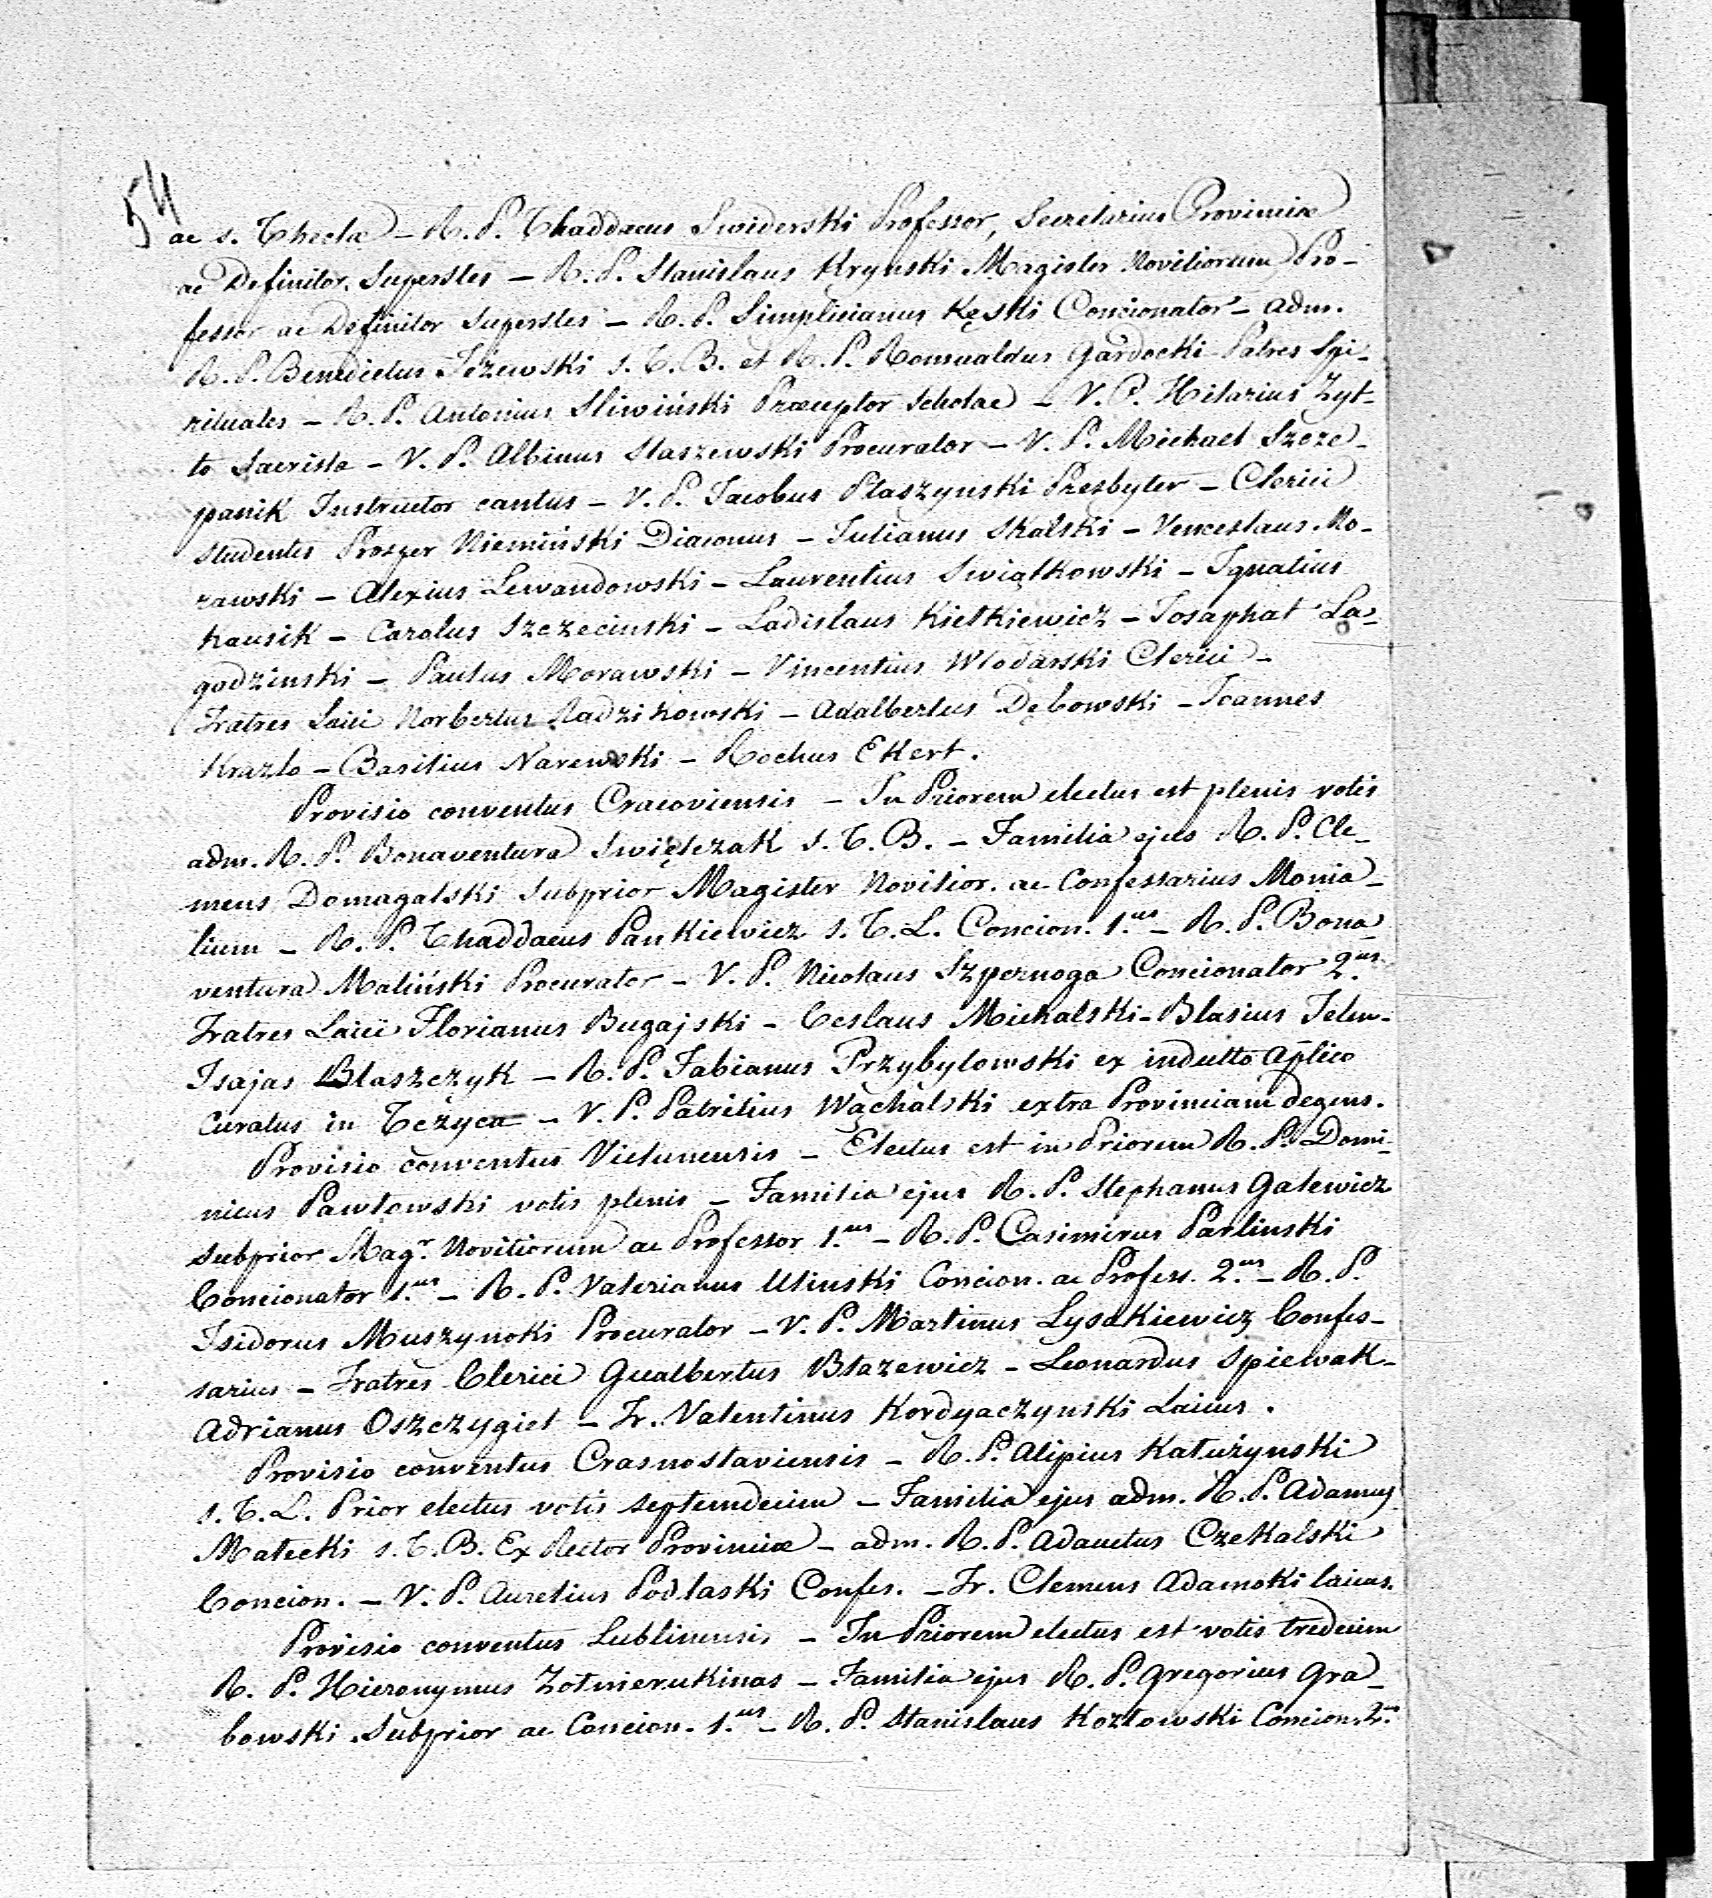 54
ac s. Theclæ – R. P. Thaddaeus Swiderski Professor, Secretarius Provinciæ
ac Definitor Superstes – R. P. Stanislaus Krynski Magister Novitiorum Pro-
fessor ac Definitor Superstes – R. P. Simplicianus Kęski Concionator – adm.
R. P. Benedictus Jeżewski S. T. B. et R. P. Romualdus Gardocki Patres Spi-
rituales – R. P. Antonius Sliwiński Præceptor Scholae – V. P. Hilarius Zyt-
to Sacrista – V. P. Albinus Staszewski Procurator – V. P. Michael Szcze-
panik Instructor cantus – V. P. Jacobus Ptaszynski Presbyter – Clerici
Studentes Prosper Niemiński Diaconus – Julianus Skalski – Venceslaus Mo-
rawski – Alexius Lewandowski – Laurentius Swiątkowski – Ignatius
Kausik – Carolus Szczecinski – Ladislaus Kietkiewicz – Josaphat La-
godzinski – Paulus Morawski – Vincentius Wlodarski Clerici –
Fratres Laici Norbertus Radzikowski – Adalbertus Dębowski – Joannes
Krazlo – Basilius Narewski – Rochus Ekert.
Provisio conventus Cracoviensis – In Priorem electus est plenis votis
adm. R. P. Bonaventura Swiętczak S. T. B. – Familia ejus R. P. Cle-
mens Domagalski Subprior Magister Novitior. ac Confessarius Monia-
lium – R. P. Thaddaeus Pankiewicz S. T. L. Concion. 1.us – R. P. Bona-
ventura Maliński Procurator – V. P. Nicolaus Szpernoga Concionator 2.us
Fratres Laici Florianus Bugajski – Ceslaus Michalski – Blasius Jelen –
Isajas Blaszczyk – R. P. Fabianus Przybylowski ex indulto Aplico
Curatus in Tczyca – V. P. Patritius Wąchalski extra Provinciam degens.
Provisio conventus Vielunensis – Electus est in Priorem R. P. Domi-
nicus Pawłowski votis plenis – Familia ejus R. P. Stephanus Galewicz
Subprior Magr. Novitiorum ac Professor 1.us – R. P. Casimirus Parlinski
Concionator 1.us – R. P. Valerianus Ulinski Concion. ac Profess. 2.us – R. P.
Isidorus Muszynski Procurator – V. P. Martinus Lysakiewicz Confes-
sarius – Fratres Clerici Gualbertus Błazewicz – Leonardus Spiewak –
Adrianus Oszczygiel – Fr. Valentinus Kordyaczynski Laicus.
Provisio conventus Crasnostaviensis – R. P. Alipius Katużynski
S. T. L. Prior electus votis septemdecim – Familia ejus adm. R. P. Adamus
Małecki S. T. B. Ex Rector Provinciæ – adm. R. P. Adauctus Czekalski
Concion. – V. P. Aurelius Podlaski Confes. – Fr. Clemens Adamski laicus.
Provisio conventus Lublinensis – In Priorem electus est votis tredecim
R. P. Hieronymus Żołnierukinas – Familia ejus R. P. Gregorius Gra-
bowski Subprior ac Concion. 1.us – R. P. Stanislaus Kozłowski Concion. 2.us